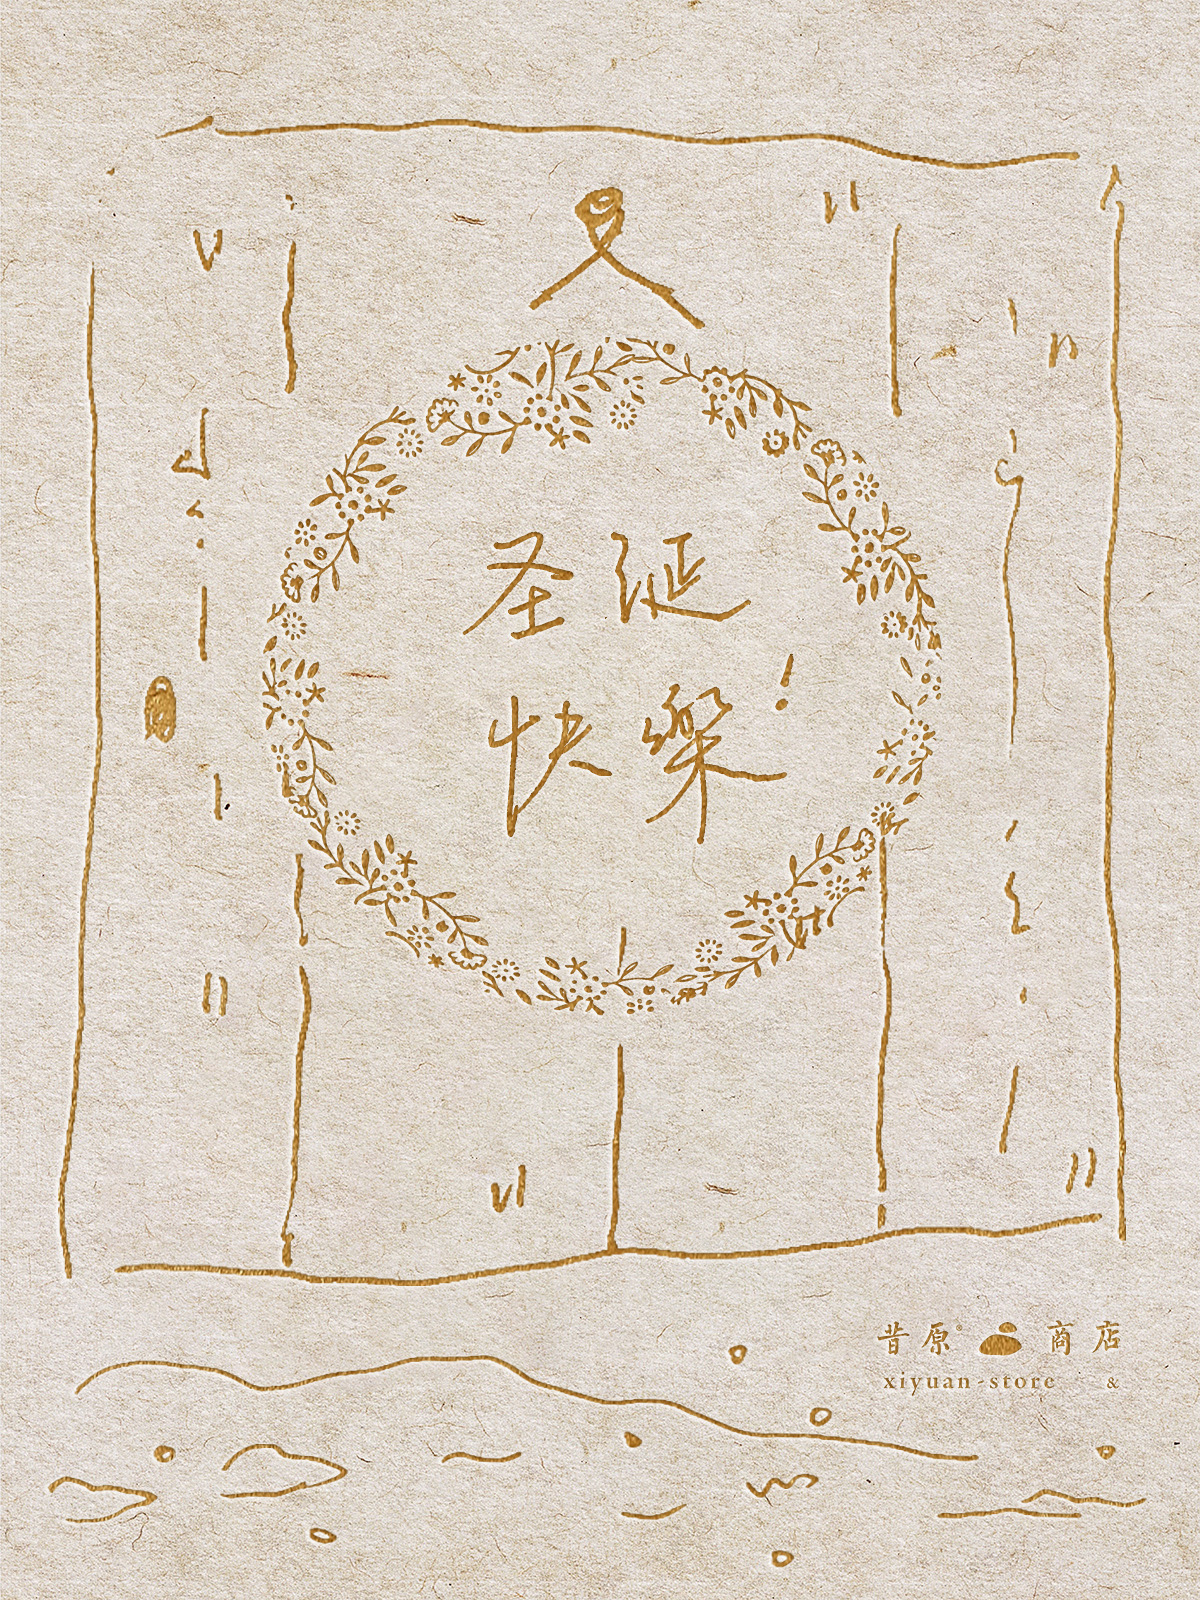 圣诞
快樂!
昔原® 商店
xiyuan-store &